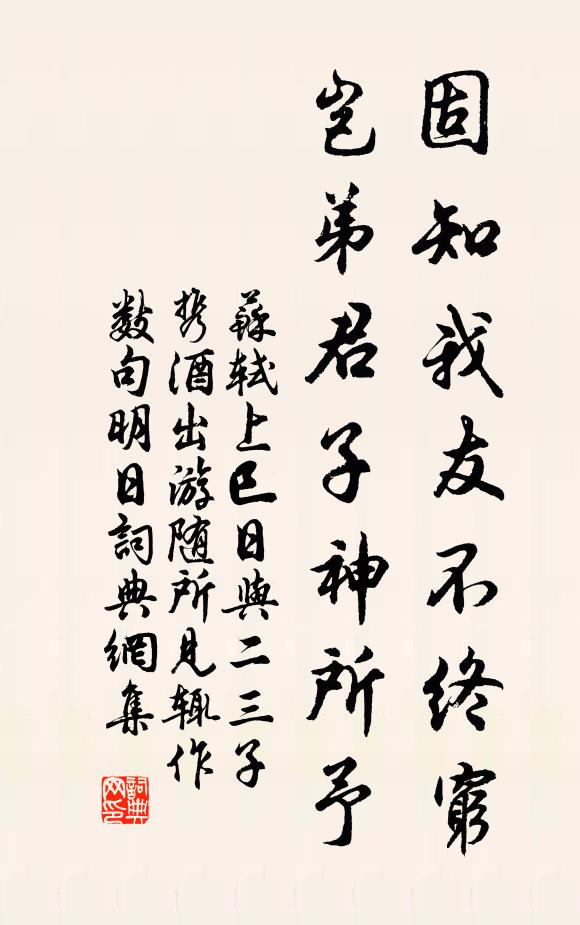 固知我友不終窮
豈弟君子神所予
蘇軾上巳日與二三子
携酒出游随所見輒作
数句明日詞典網集
詞典
网印